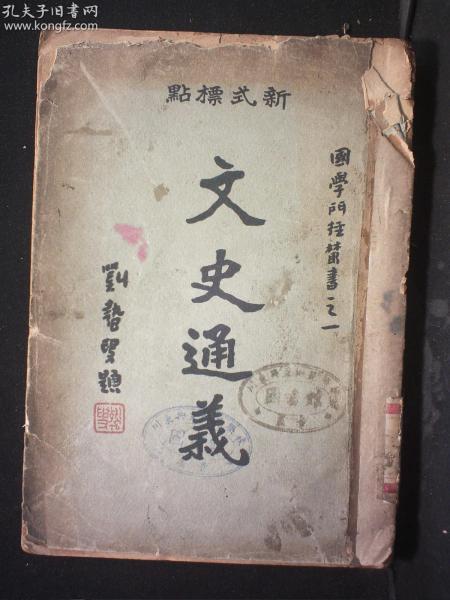 孔夫子旧書网
www.kongfz.com
點標式新
國學門徑叢書之一
文史通義
劉
題
圖書館